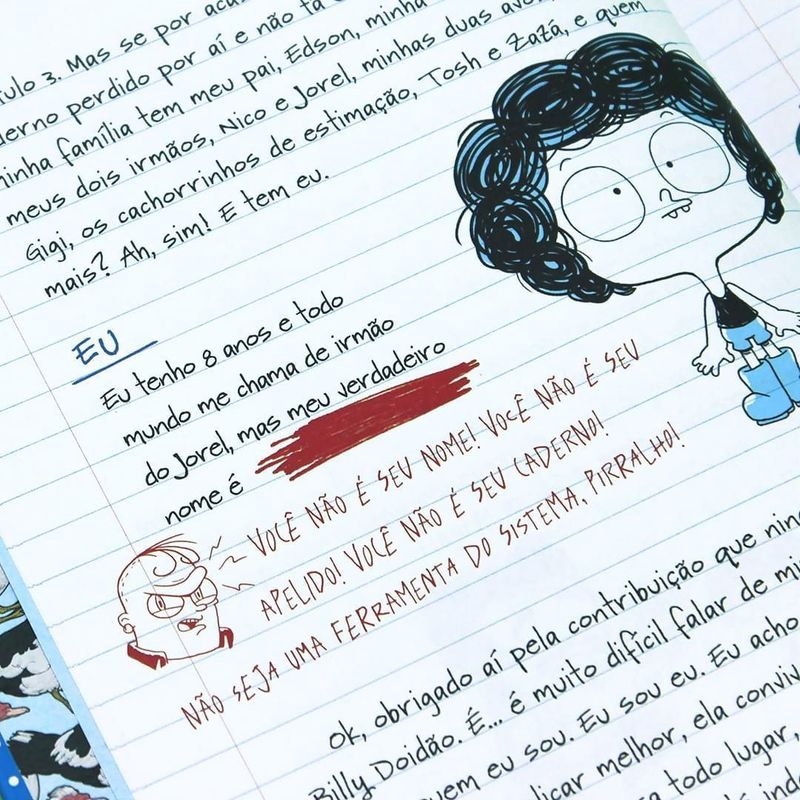 ulo 3. Mas se por
derno perdido por aí e não
minha família tem meu pai, Edson, minha
meus dois irmãos, Nico e Jorel, minhas duas
Gigi, os cachorrinhos de estimação, Tosh e Zazá, e quem
mais? Ah, sim! E tem eu.
EU
Eu tenho 8 anos e todo
mundo me chama de irmão
do Jorel, mas meu verdadeiro
nome é
VOCÊ NÃO É SEU NOME! VOCÊ NÃO É SEU
APELIDO! VOCÊ NÃO É SEU CADERNO!
NÃO SEJA UMA FERRAMENTA DO SISTEMA, PIRRALHO!
Ok, obrigado aí pela contribuição que
Billy Doidão. É... é muito difícil falar de
quem eu sou. Eu sou eu. Eu acho
plicar melhor, ela
sa todo lugar,